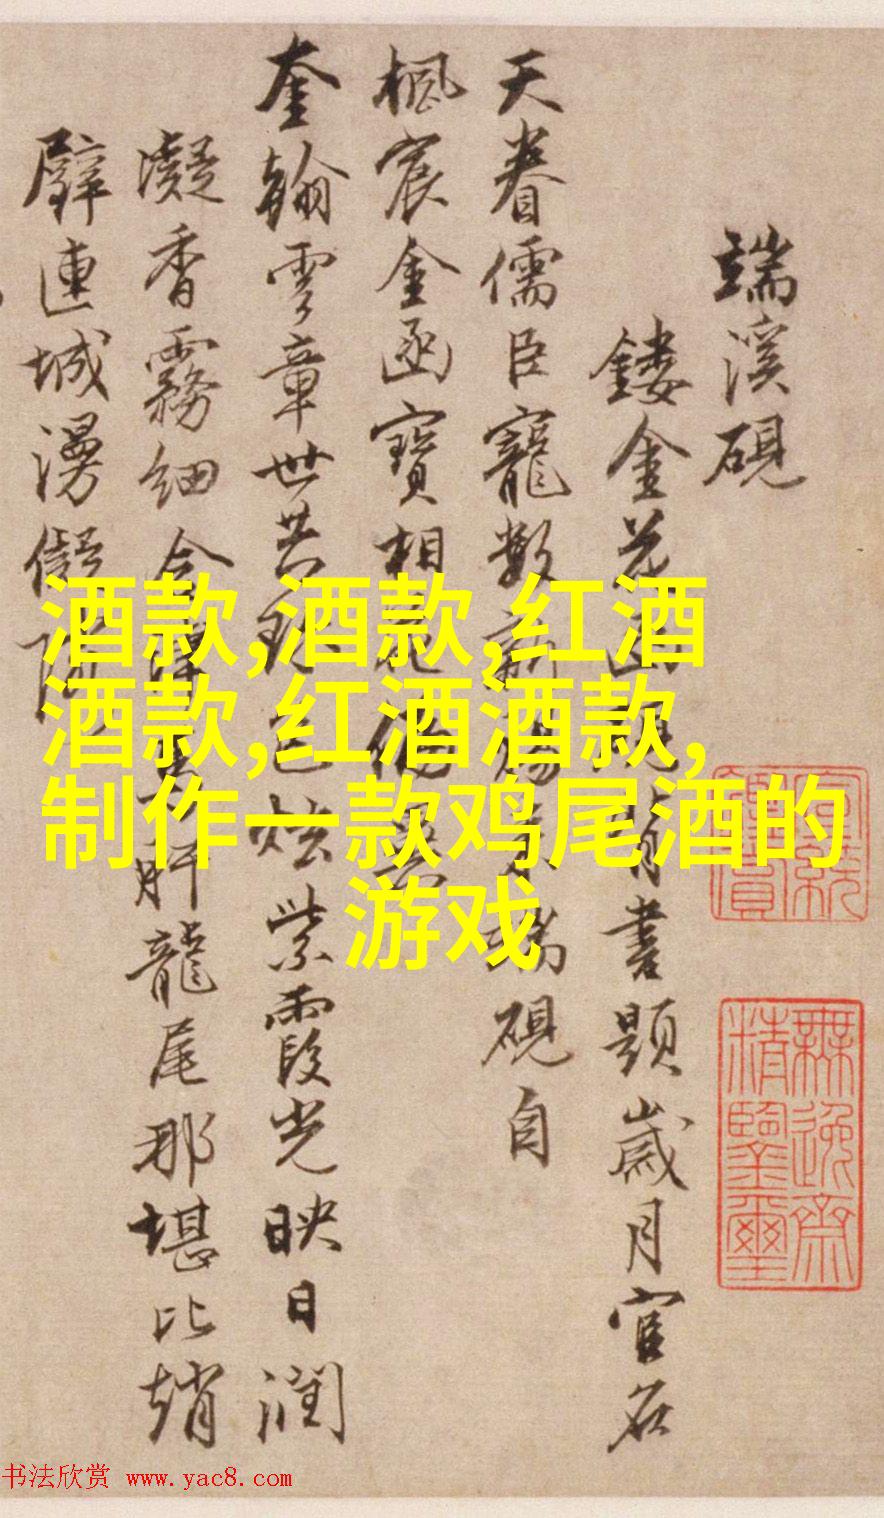 端溪硯
鏤金花
書題歲月官名
天眷儒臣寵數新
端硯自
楓宸金函寶相花
奎翰雲章世共
炫紫霞光映日潤
凝香霧細
龍尾那堪比趙
璧連城漫儗
酒款,酒款,红酒
酒款,红酒酒款,
制作一款鸡尾酒的
游戏
無逸齋
精鑒璽
书法欣赏 www.yac8.com